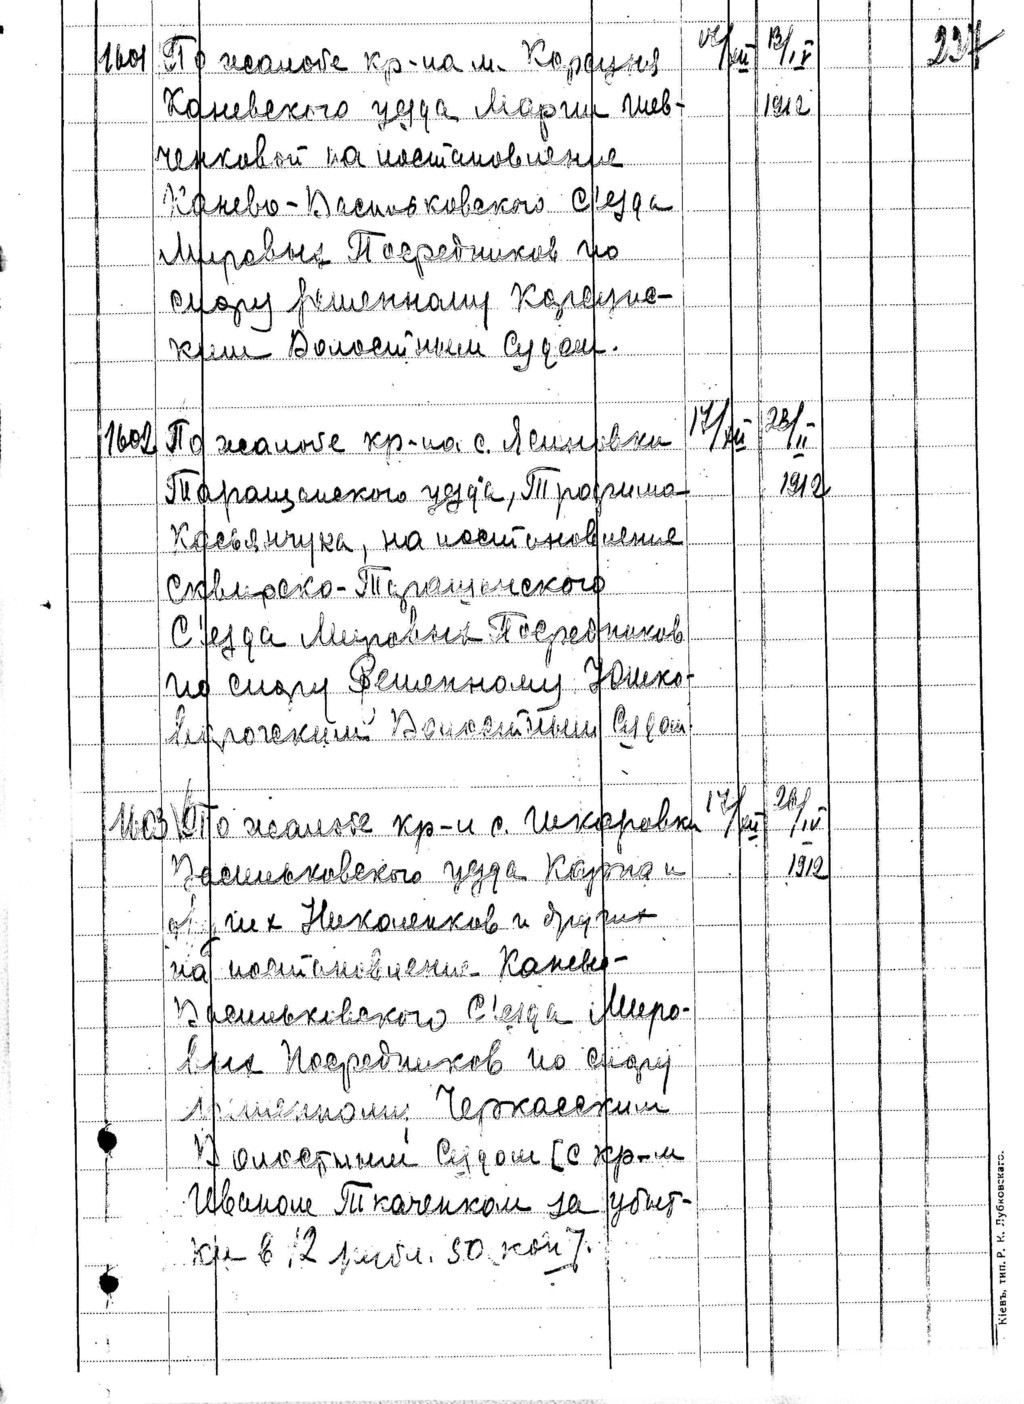 237
1601 По жалобе кр-на м. Корсуня 16/XII 13/IV
Каневского уезда Марии Шев- 1912
ченковой на постановление
Канево-Васильковского С'езда
Мировых Посредников по
спору решенному Корсунс-
ким Волостным Судом.
1602 По жалобе кр-на с. Ясиновки 17/XII 23/II
Таращанского уезда, Трофима 1912
Касьянчука, на постановление
Сквирско-Таращанского
С'езда Мировых Посредников
по спору Решенному Юшко-
Рогским Волостным Судом
1603 По жалобе кр-н с. Шкаровки 17/XII /IV
Васильковского уезда Карпа и 1912
Николенков и других
на постановление Канево-
Васильковского С'езда Миро-
вых Посредников по спору
решенному Черкасским
Волостным Судом [с кр-м
Иваном Ткаченком за убыт-
ки в 12 рубл. 50 коп].
Кіевъ, тип. Р. К. Лубковскаго.